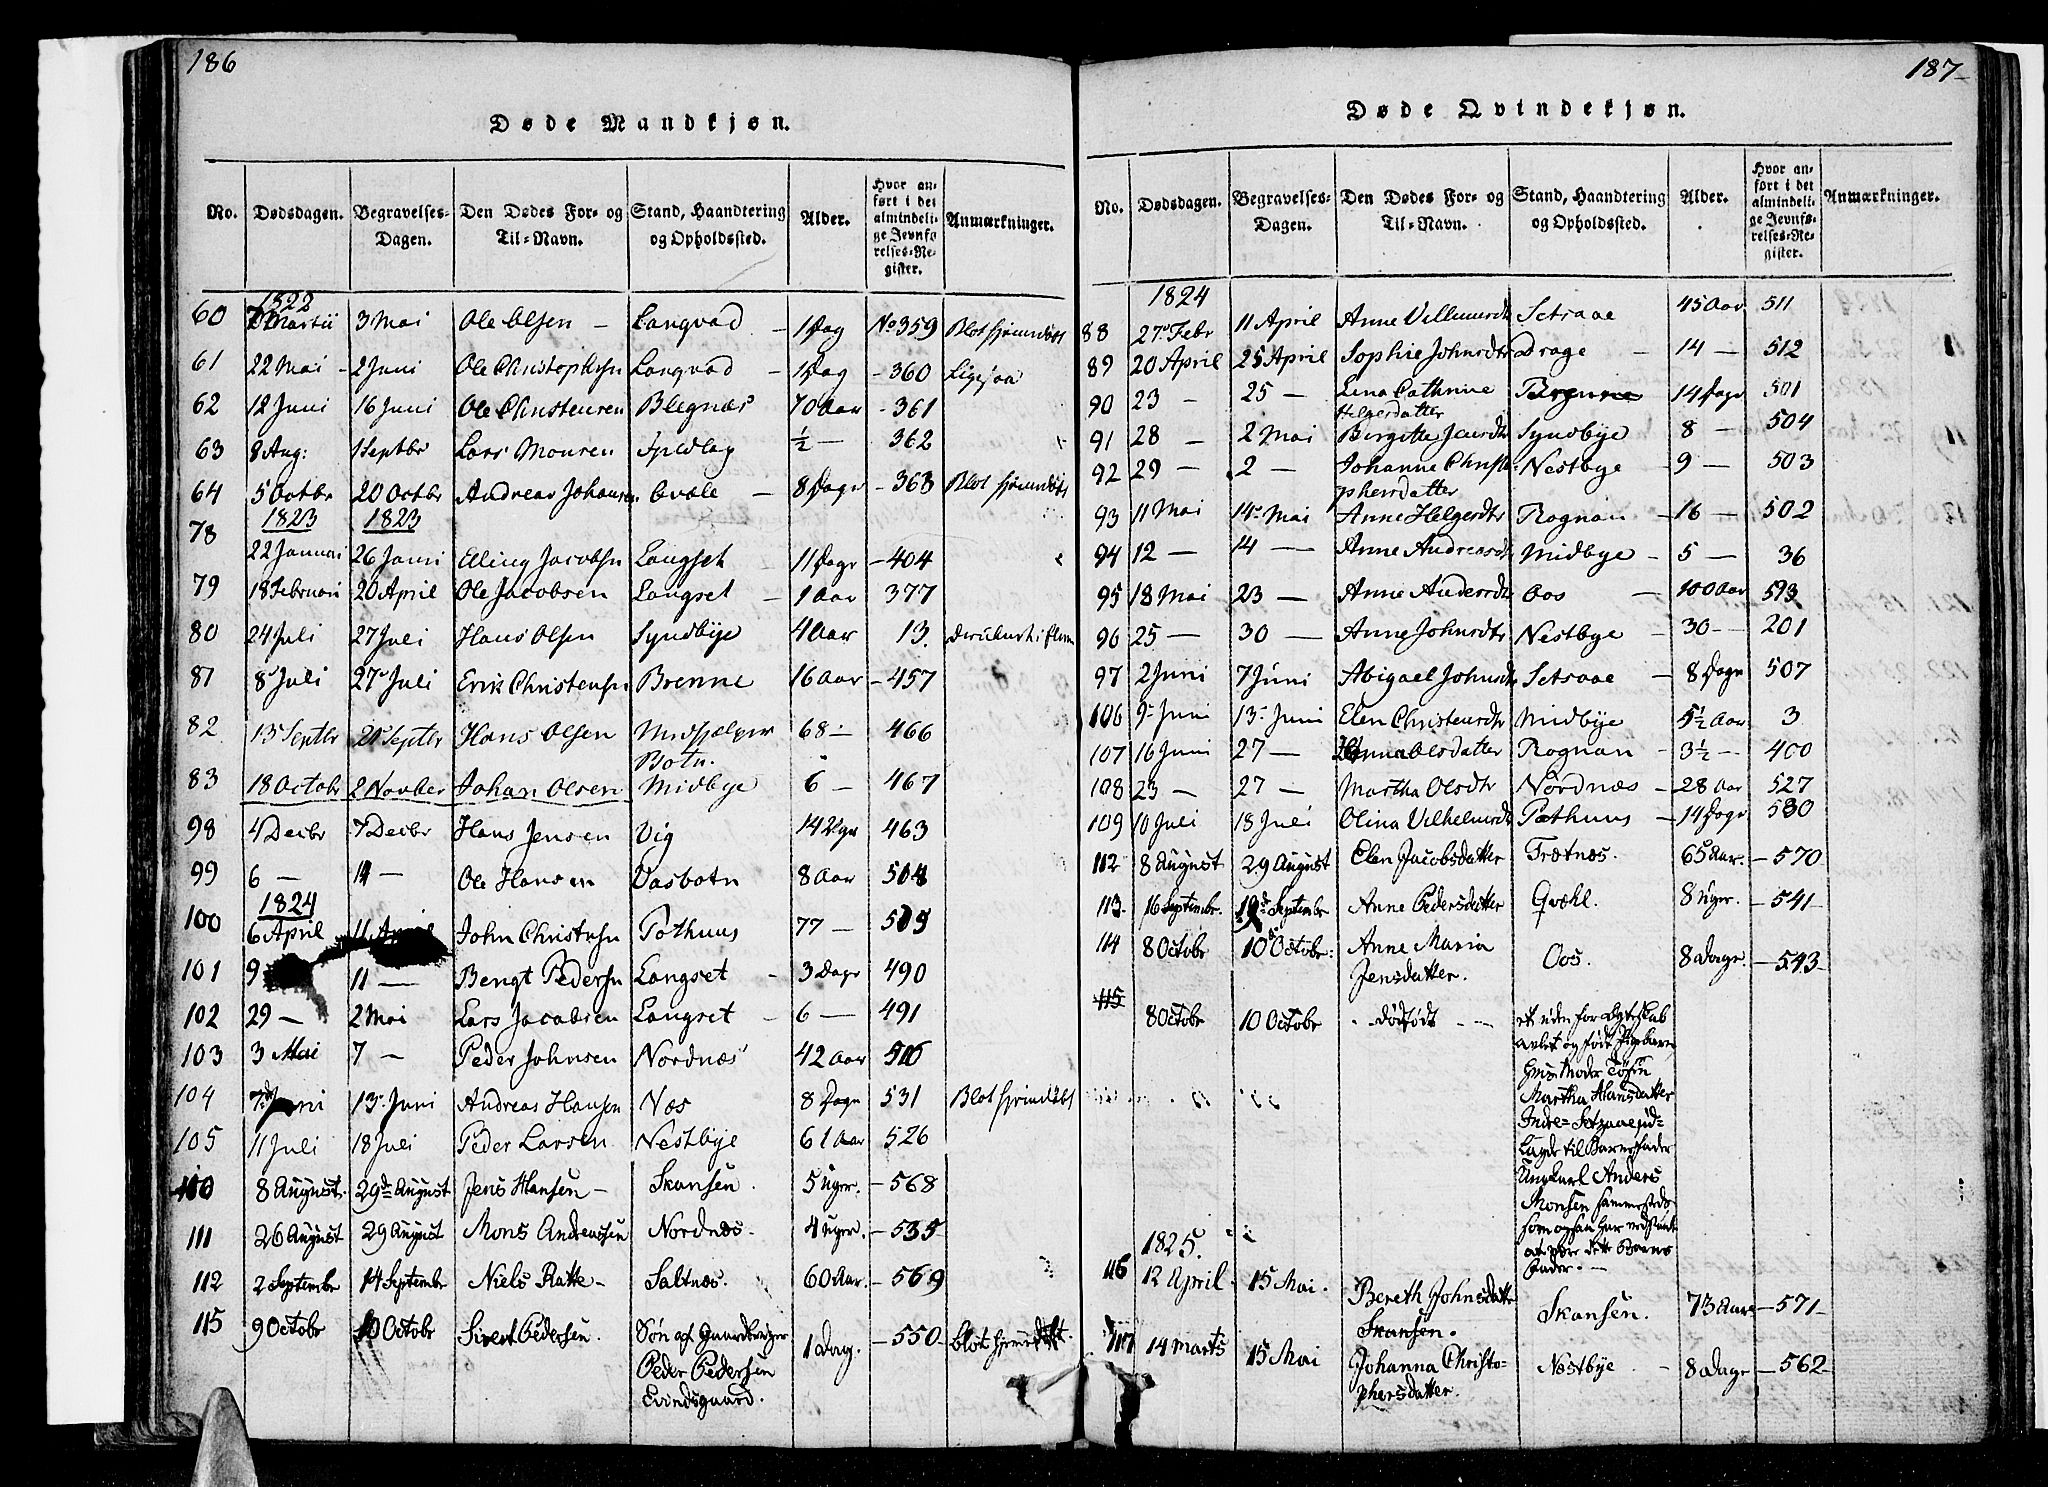 186
Døde Mandkjøn.
No. Dødsdagen. Begravelses-Dagen. Den Dødes For- og Til-Navn. Stand, Haandtering og Opholdssted. Alder. Hvor anført i det almindelige Jevnførelses-Register. Anmærkninger.
1822
60 Martii 3 Mai Ole Olsen – Langvad – 1 Dag No 359 Blot hjemdøbt
61 22 Mai – 2 Juni Ole Christophsn Langvad – 1 Dag – 360 Ligesaa
62 12 Juni 16 Juni Ole Christensen Blegnæs 70 Aar – 361
63 8 Aug: 1 Septbr Lars Monsen ½ – 362
64 5 Octbr 20 Octbr Andreas Johansen Evale – 8 Dage – 368 Blot hjemdøbt
1823 1823
78 22 Januari 26 Janri Elling Jacobsn Langset 11 Dage – 404
79 18 Februari 20 April Ole Jacobsen Langset – 1 Aar 377
80 24 Juli 27 Juli Hans Olsen Syndbye 4 Aar 13.
81 8 Juli 27 Juli Erik Christensn Brenne 16 Aar – 457
82 13 Septbr 21 Septbr Hans Olsen Midhjelper Botn. 68 – – 466
83 18 Octobr 2 Novber Johan Olsen Midbye 6 – – 467
98 4 Decbr 7 Decbr Hans Jensen Vig 14 463
99 6 – – Ole Hansen Vasbotn 8 Aar 508
1824
100 6 April 11 April John Christensn Pothuus 77 – 509
101 9 11 – Bengt Pedersn Langset – 3 Dage 490
102 29 – 2 Mai Lars Jacobsen Langset – 6 – 491
103 3 Mai 7 – Peder Johnsen Nordnæs 42 Aar 506
104 7 Juni 13 Juni Andreas Hansen Næs 8 Dage 531 Blot hjemdøbt
105 11 Juli 18 Juli Peder Larsen Nestbye 61 Aar 526
110 8 August. 29de August Jens Hansen – Skansen. 5 Uger. – 568
111 26 August 29 August Mons Andreassen Nordnæs. 4 Uger. – 535
112 2 Septembr 14 Septembr Niels Ratte – Saltnæs. 60 Aar. – 569
115 9 Octobr 10 Octobr Sivert Pedersen. Søn af Gaardbruger 1 Dag. – 550 – Blot hjemdøbt.
Peder Pedersen
Evindsgaard.
187
Døde Qvindekjøn.
No. Dødsdagen. Begravelses-Dagen. Den Dødes For- og Til-Navn. Stand, Haandtering og Opholdssted. Alder. Hvor anført i det almindelige Jevnførelses-Register. Anmærkninger.
1824
88 27 Febr 11 April Anne Setraae 45 Aar 511
89 20 April 25 April Sophie Johnsdtr Drage – 14 – 512
90 23 – 25 – Lena Cathrine 14 Dage 501
Helgesdatter
91 28 – 2 Mai Birgitte Jensdtr Syndbye 8 – 504
92 29 – 2 – Johanne Christo- Nestbye – 9 – 503
phersdatter
93 11 Mai 14 Mai Anne Helgesdtr Rognan – 16 – 502
94 12 – 14 – Anne Andreasdtr Midbye – 5 – 36
95 18 Mai 23 – Anne Andersdtr Oos – 100 Aar 593
96 25 – 30 – Anne Johnsdtr Nestbye – 30 – 201
97 2 Juni 7 Juni Abigael Johnsdtr Setraae – 8 Dage 507
106 9 Juni 13 Juni Elen Christensdtr Midbye 5½ Aar 3
107 16 Juni 27 – Anna Olsdatter Rognan – 3½ – 400
108 23 – 27 – Martha Olsdtr Nordnæs – 28 Aar 527
109 10 Juli 18 Juli Olina Vilhelmsdtr Pothuus – 14 Dage 530
112 8 August 29 August Elen Jacobsdatter Trætnæs. 65 Aar. – 570
113. 16 Septembr. 19de Septembr Anne Pedersdatter Qvæhl. 8 Uger. – 541 –
114 8 Octobr 10de Octobr: Anne Maria Oos. 8 Dage. – 543 –
Jensdatter.
115 8 Octobr 10 Octobr dødfødt – et uden for Egteskab
avlet og fødd Pigebarn
hvis Moder Tøsen
Martha Hansdatter
Indre-Setraae ud-
lagde til Barnefader
Ungkarl Anders
Monsen sammesteds
som ogsaa har vedstaaet
at være dette Barns
Fader. –
1825.
116 12 April. 15 Mai. Bereth Johnsdatter Skansen. 73 Aar – 571 –
Skansen.
117 14 Marts 15 Mai Johanna Christo- Nestbye – 8 Dage – 562 –
phersdatter.